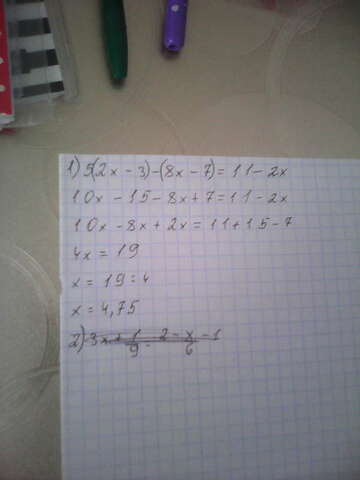 1) 5(2x - 3) - (8x - 7) = 11 - 2x
10x - 15 - 8x + 7 = 11 - 2x
10x - 8x + 2x = 11 + 15 - 7
4x = 19
x = 19 : 4
x = 4,75
2) 3x + 1/9 - 2 - x/6 - 1